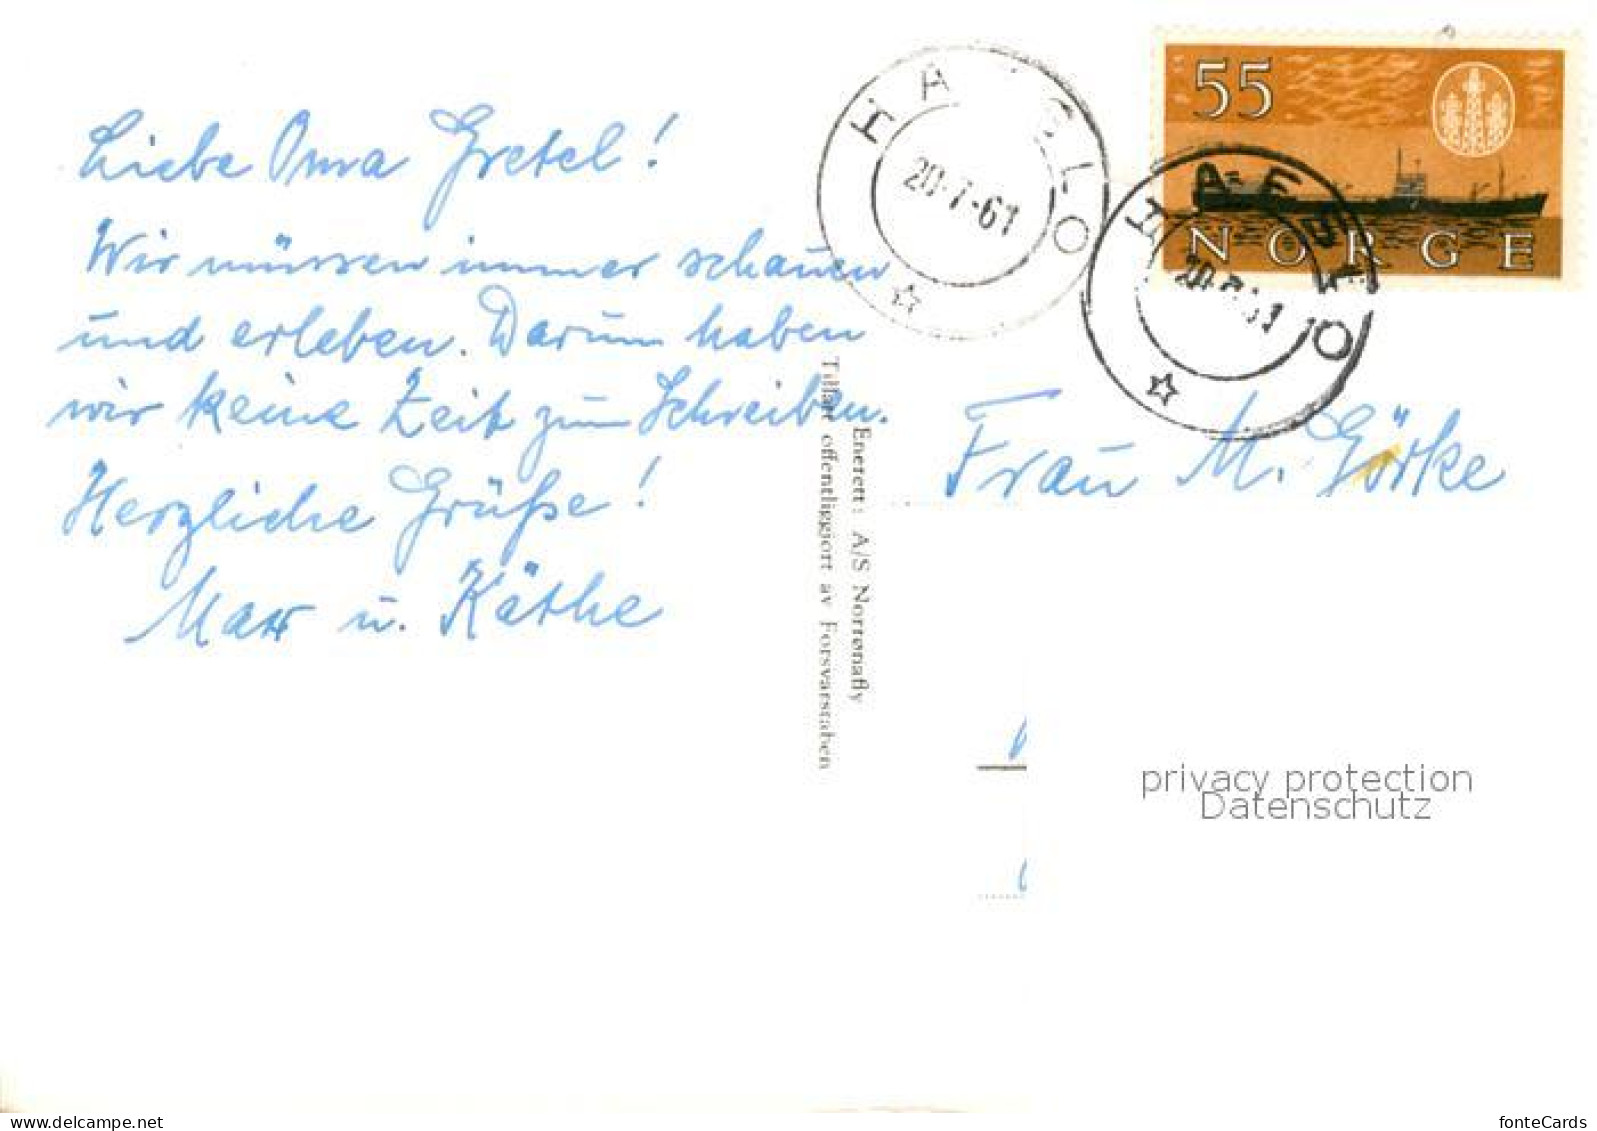 Liebe Oma Gretel!
Wir müssen immer schauen
und erleben. Darum haben
wir keine Zeit zum Schreiben.
Herzliche Grüße!
Max u. Käthe
Enerett: A/S Norrønafly
Tillatt offentliggjort av Forsvarstaben
HA ELO
20-7-61
55
NORGE
HAEBELO
Frau M. Görke
privacy protection
Datenschutz
fonteCards